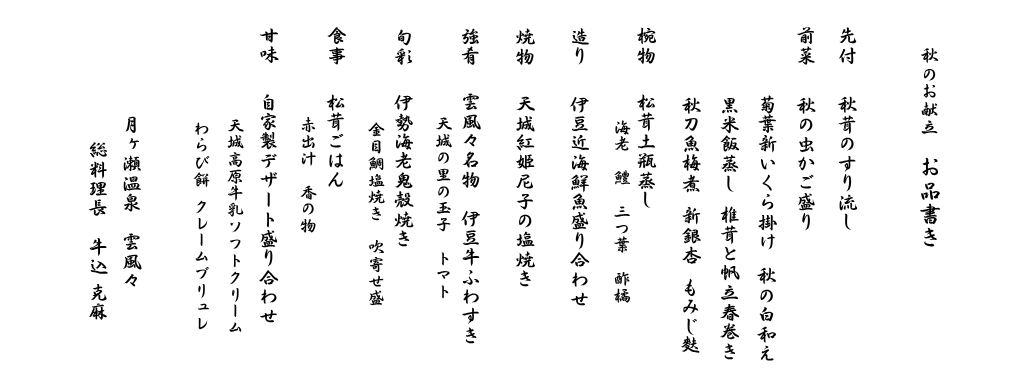 秋のお献立　お品書き
先付　秋茸のすり流し
前菜　秋の虫かご盛り
菊葉新いくら掛け　秋の白和え
黒米飯蒸し　椎茸と帆立春巻き
秋刀魚梅煮　新銀杏　もみじ麩
椀物　松茸土瓶蒸し
海老　鱧　三つ葉　酢橘
造り　伊豆近海鮮魚盛り合わせ
焼物　天城紅姫尼子の塩焼き
強肴　雲風々名物　伊豆牛ふわすき
天城の里の玉子　トマト
旬彩　伊勢海老鬼殻焼き
金目鯛塩焼き　吹寄せ盛
食事　松茸ごはん
赤出汁　香の物
甘味　自家製デザート盛り合わせ
天城高原牛乳ソフトクリーム
わらび餅　クレームブリュレ
月ヶ瀬温泉　雲風々
総料理長　牛込　克麻